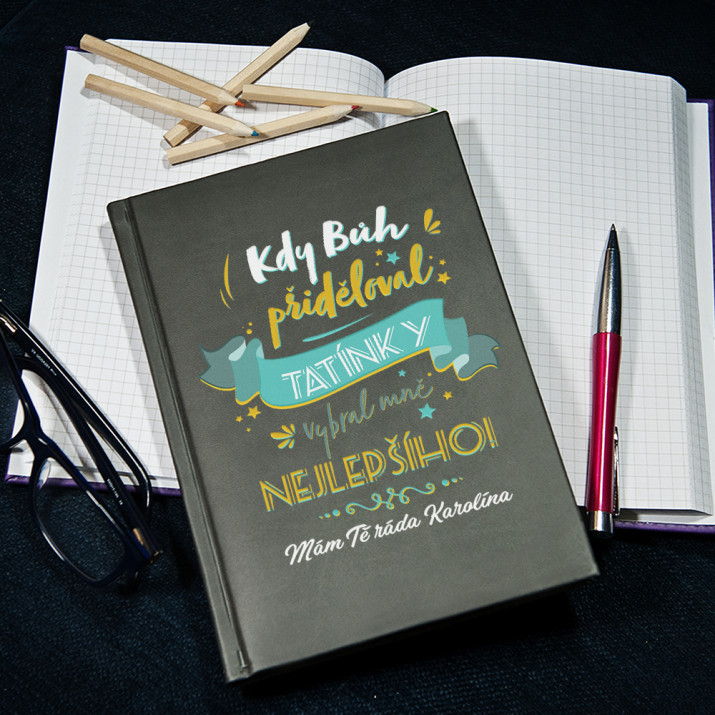 Kdy Bůh
přiděloval
TATÍNKY
vybral mně
NEJLEPŠÍHO!
Mám Tě ráda Karolína